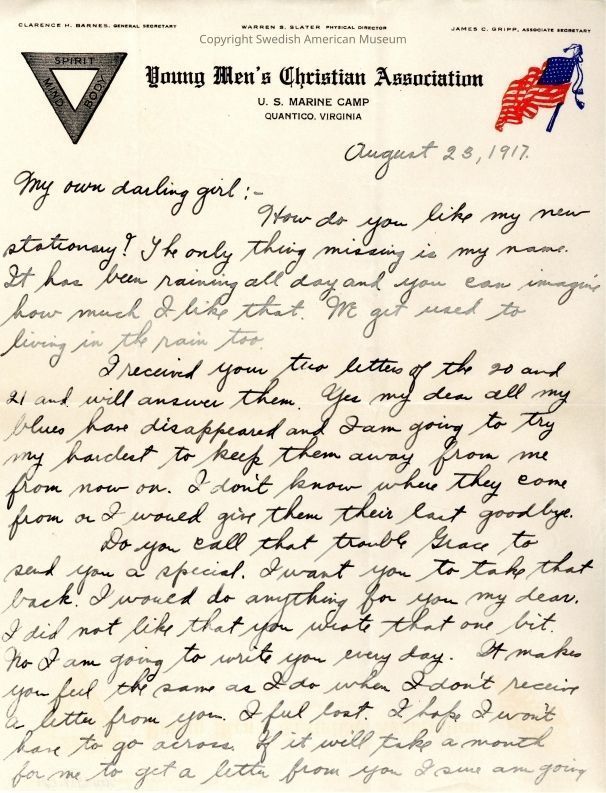 CLARENCE H. BARNES, GENERAL SECRETARY
WARREN S. SLATER PHYSICAL DIRECTOR
JAMES C. GRIPP, ASSOCIATE SECRETARY
Copyright Swedish American Museum
SPIRIT
MIND
BODY
Young Men's Christian Association
U. S. MARINE CAMP
QUANTICO, VIRGINIA
August 23, 1917.
My own darling girl:-
How do you like my new
stationary? The only thing missing is my name.
It has been raining all day and you can imagine
how much I like that. We get used to
living in the rain too.
I received your two letters of the 20 and
21 and will answer them. Yes my dear all my
blues have disappeared and I am going to try
my hardest to keep them away from me
from now on. I don't know where they come
from or I would give them their last goodbye.
Do you call that trouble Grace to
send you a special. I want you to take that
back. I would do anything for you my dear.
I did not like that you wrote that one bit.
No I am going to write you every day. It makes
you feel the same as I do when I don't receive
a letter from you. I feel lost. I hope I won't
have to go across. If it will take a month
for me to get a letter from you I sure am going